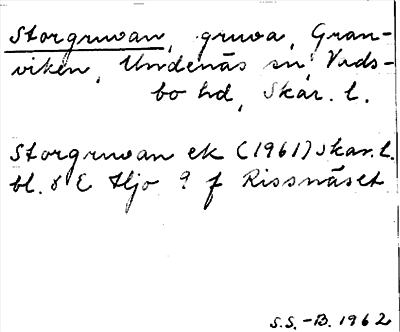 Storgruvan, gruva, Gran-
viken, Undenäs sn, Vads-
bo hd, Skar. l.
Storgruvan ek (1961) Skar. l.
bl. 8 E Hjo 9 f Rissnäset
S.S. -B. 1962